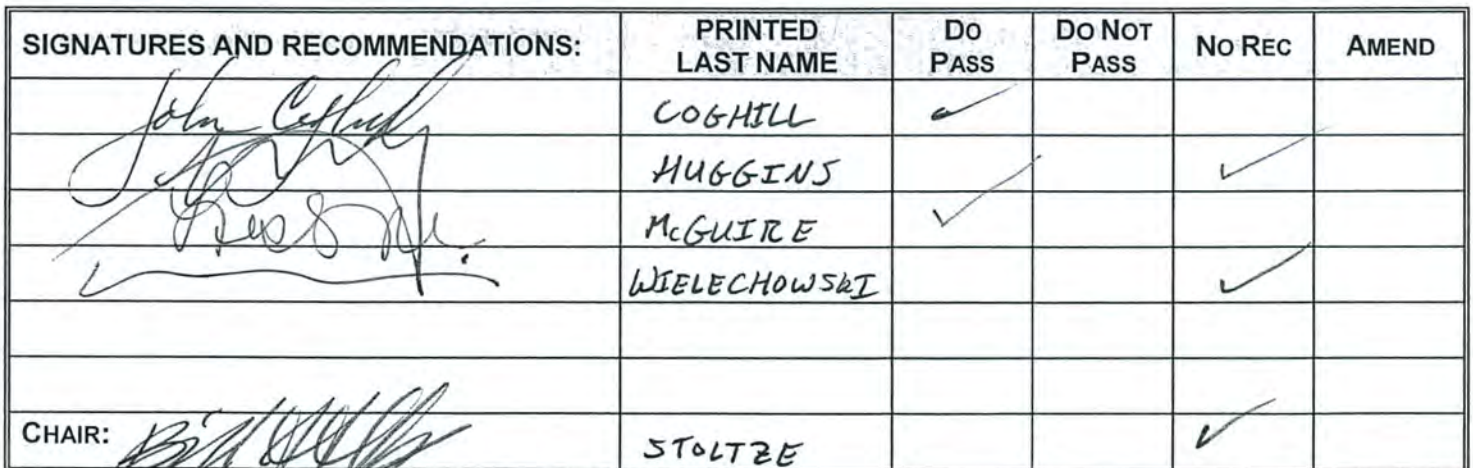 SIGNATURES AND RECOMMENDATIONS: PRINTED LAST NAME DO PASS DO NOT PASS NO REC AMEND
John Coghill COGHILL ✓
HUGGINS ✓
McGUIRE ✓
WIELECHOWSKI ✓
CHAIR: Bill STOLTZE ✓